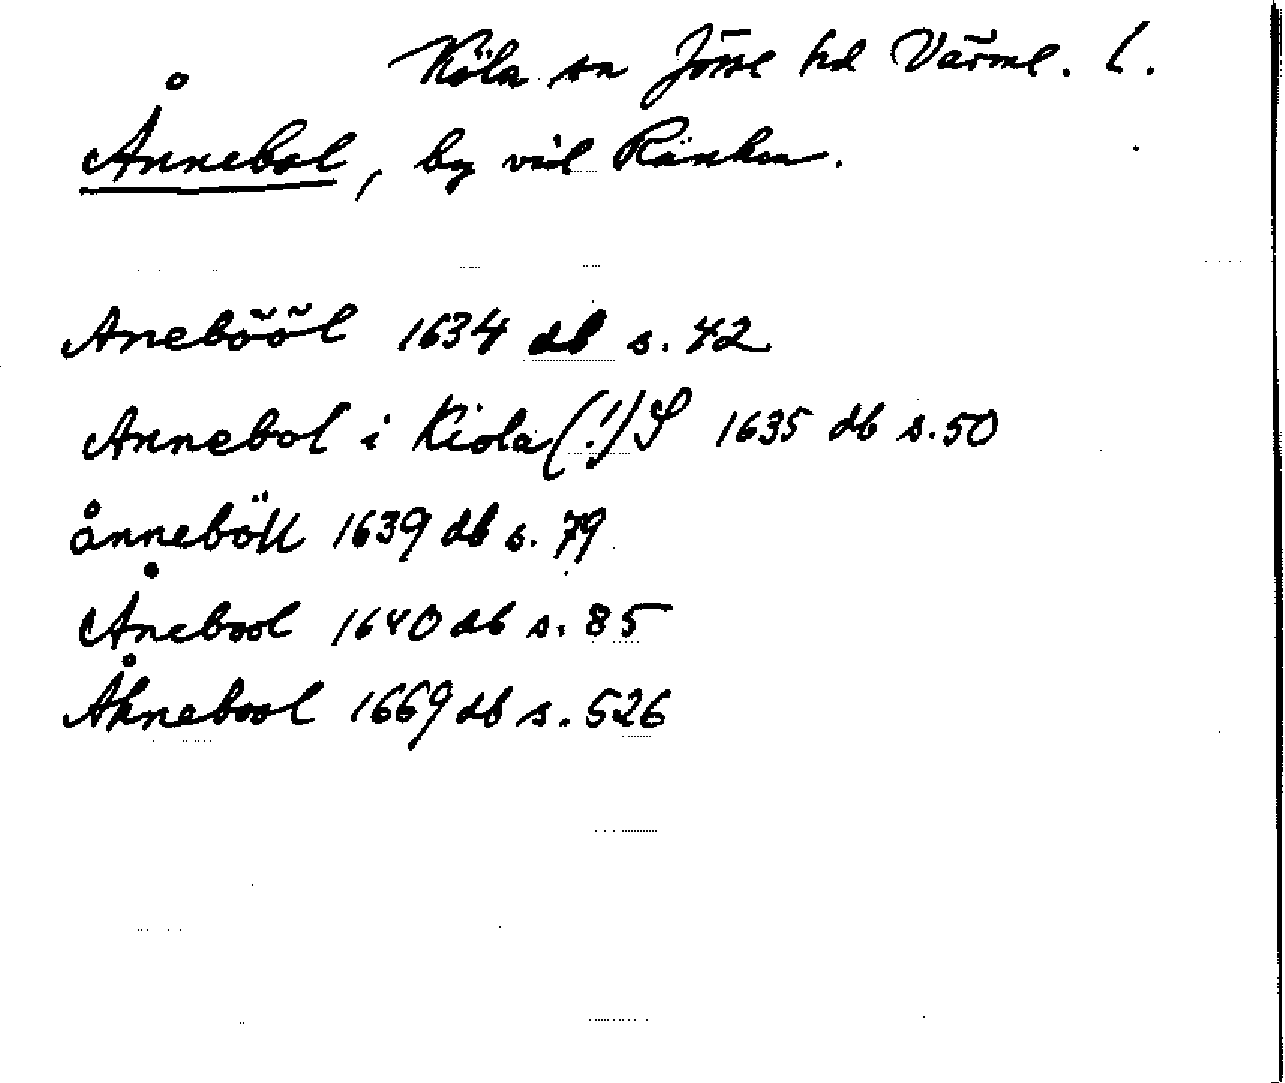 Köla sn Jösse hd Värml. l.
Ånnebol, by vid Ränken.
Anebööl 1634 db s. 42
Annebol i Kiola (!) S 1635 db s. 50
ånneböll 1639 db s. 79
Ånebool 1640 db s. 85
Åhnebool 1669 db s. 526